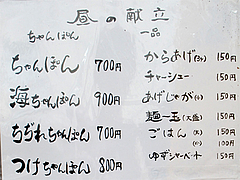 昼の献立
ちゃんぽん
ちゃんぽん 700円
海ちゃんぽん 900円
ちぢれちゃんぽん 700円
つけちゃんぽん 800円
一品
からあげ(3ヶ) 150円
チャーシュー 150円
あげじゃが(4ヶ) 150円
麺一玉(大盛) 150円
ごはん (大) 150円
(小) 100円
ゆずシャーベット 150円